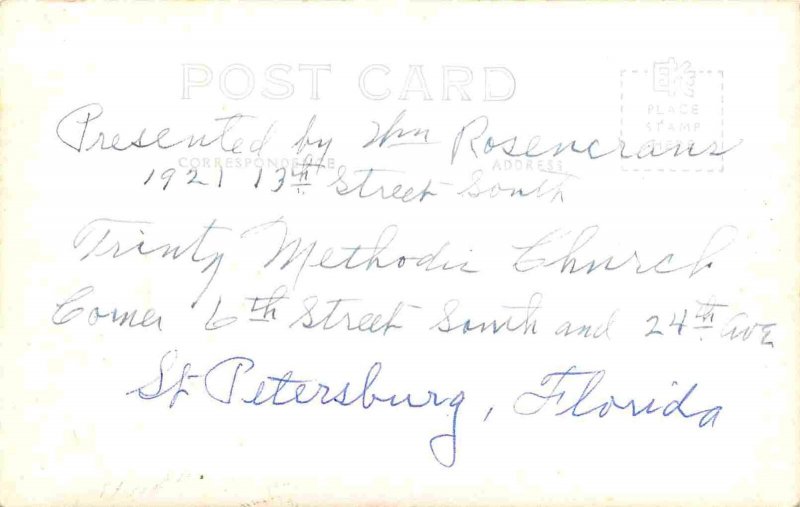 POST CARD
PLACE
STAMP
HERE
Presented by Wm Rosencrans
CORRESPONDENCE ADDRESS
1921 13th Street South
Trinty Methodic Church
Corner 6th Street South and 24th Ave
St Petersburg, Florida